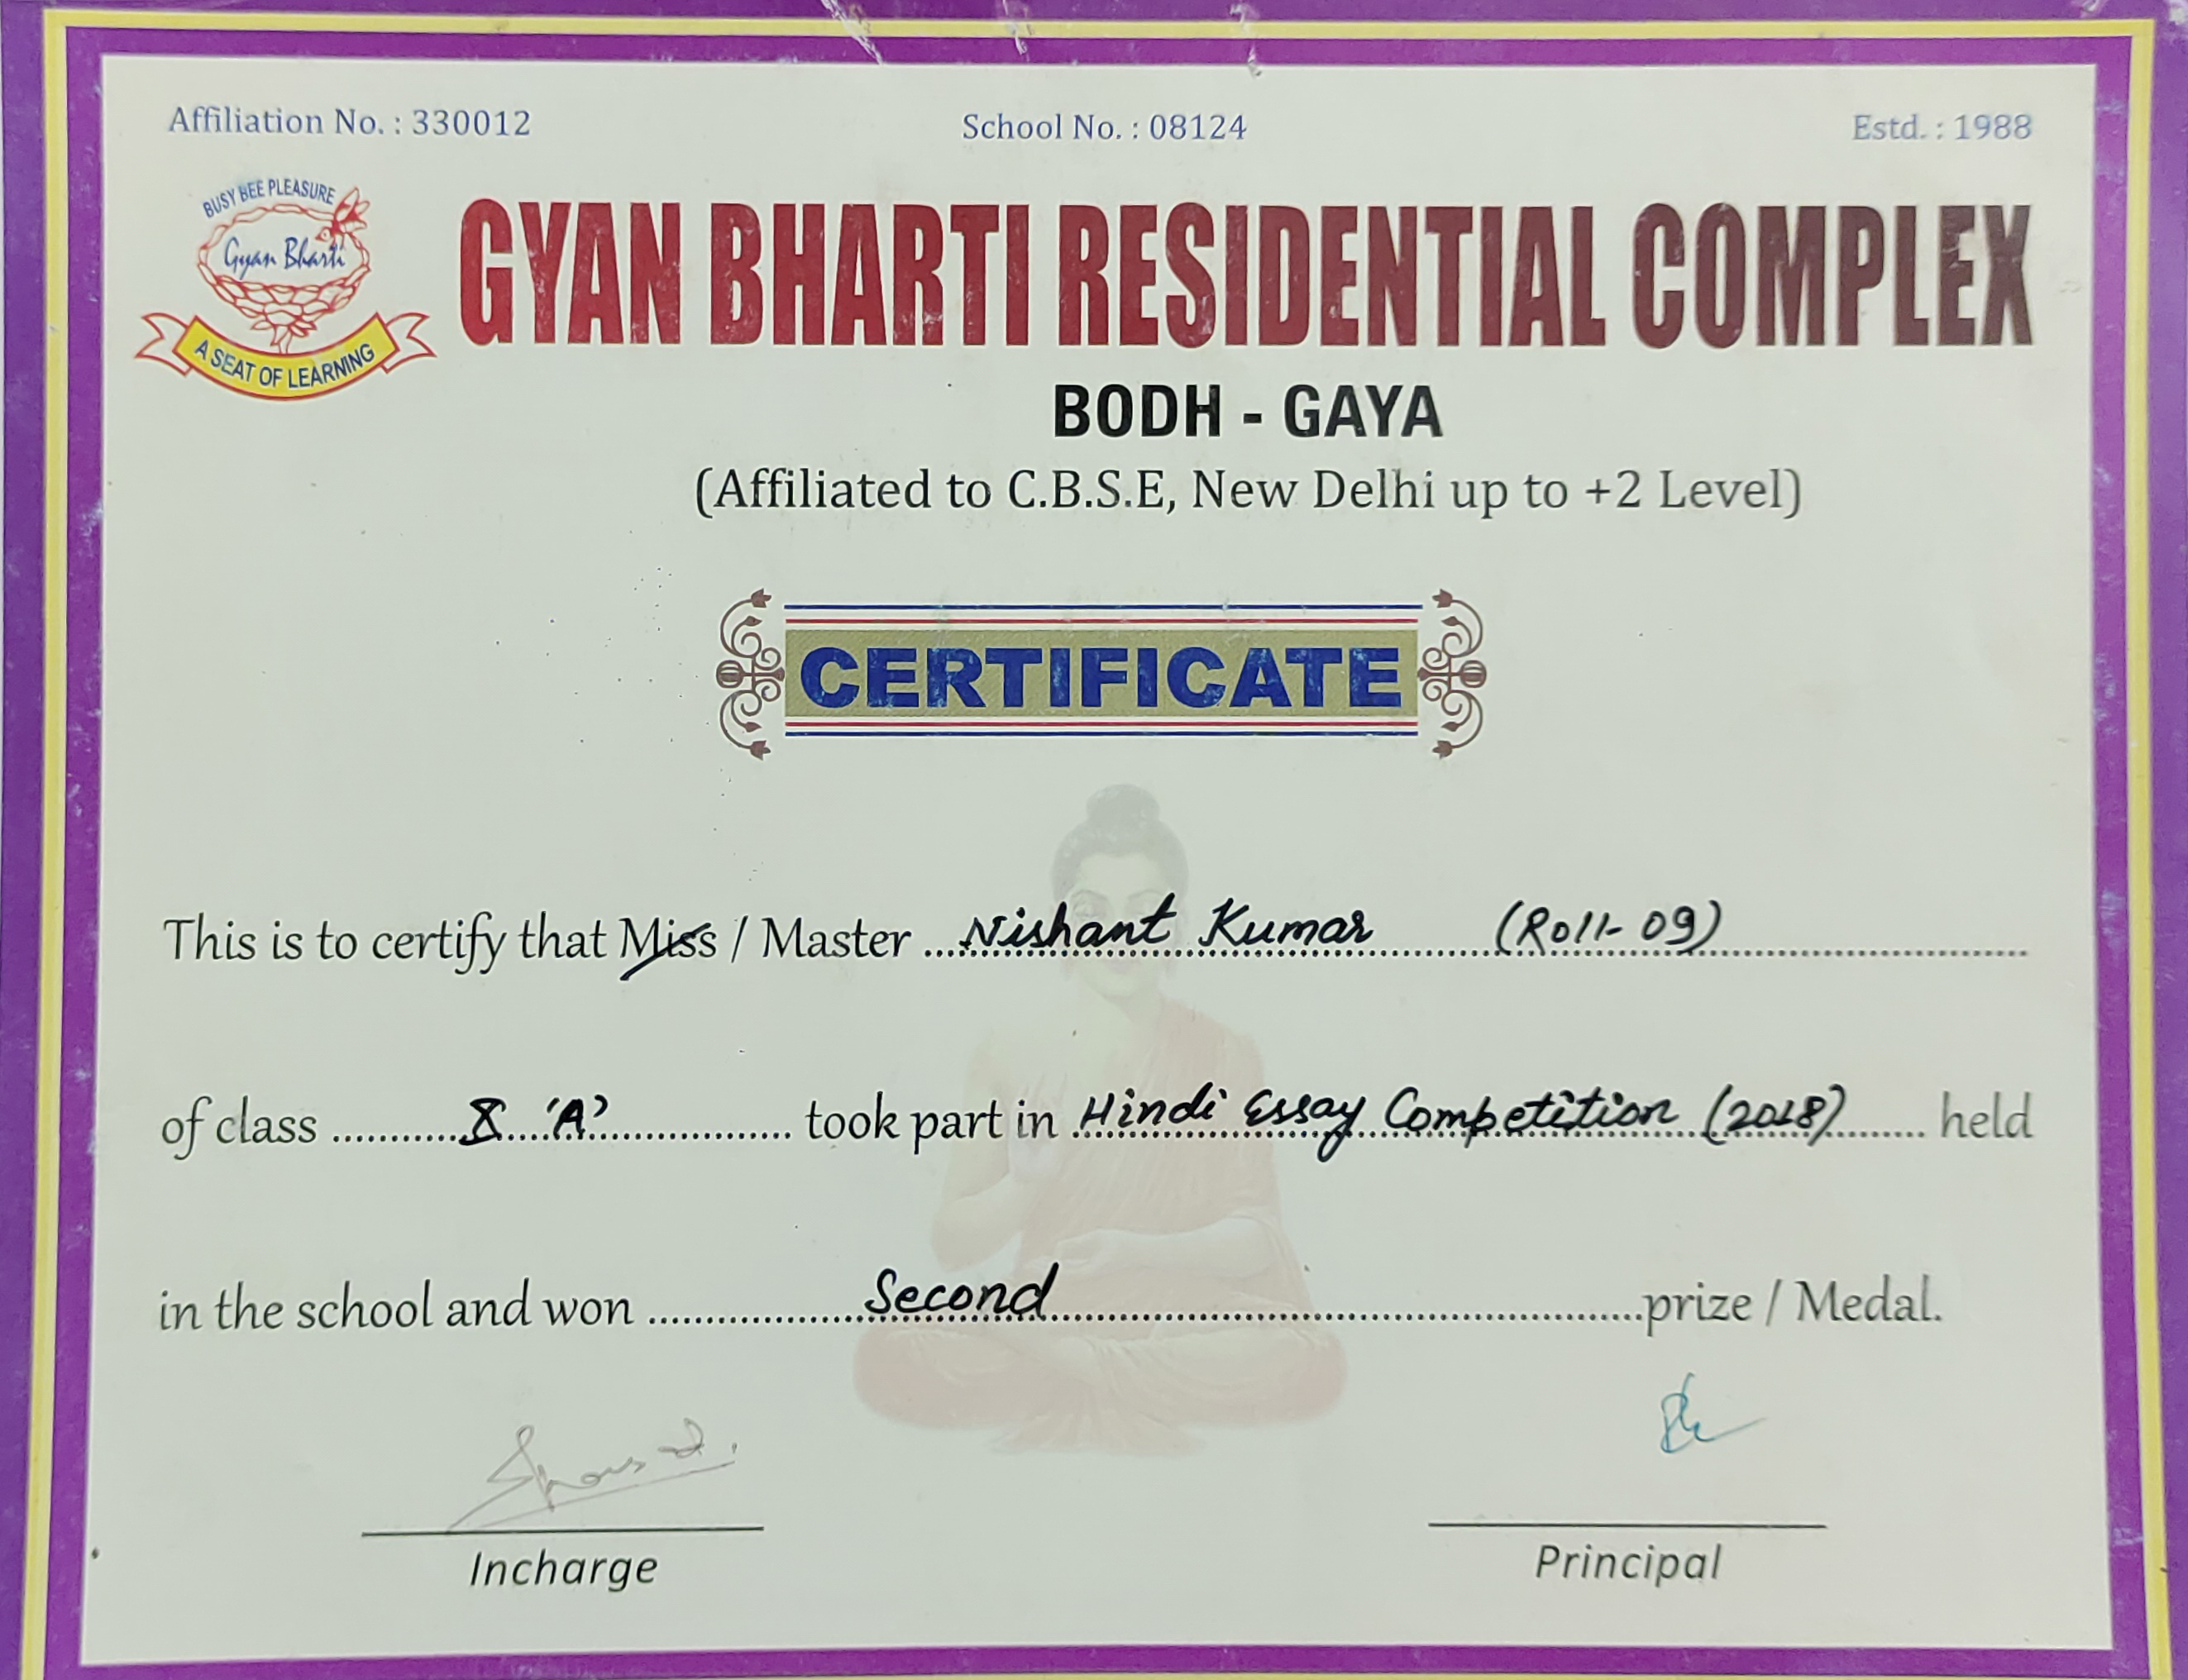 Affiliation No. : 330012 School No. : 08124 Estd. : 1988
BUSY BEE PLEASURE
Gyan Bharti
A SEAT OF LEARNING
GYAN BHARTI RESIDENTIAL COMPLEX
BODH - GAYA
(Affiliated to C.B.S.E, New Delhi up to +2 Level)
CERTIFICATE
This is to certify that Miss / Master Nishant Kumar (Roll-09)
of class X 'A' took part in Hindi Essay Competition (2018) held
in the school and won Second prize / Medal.
Incharge Principal